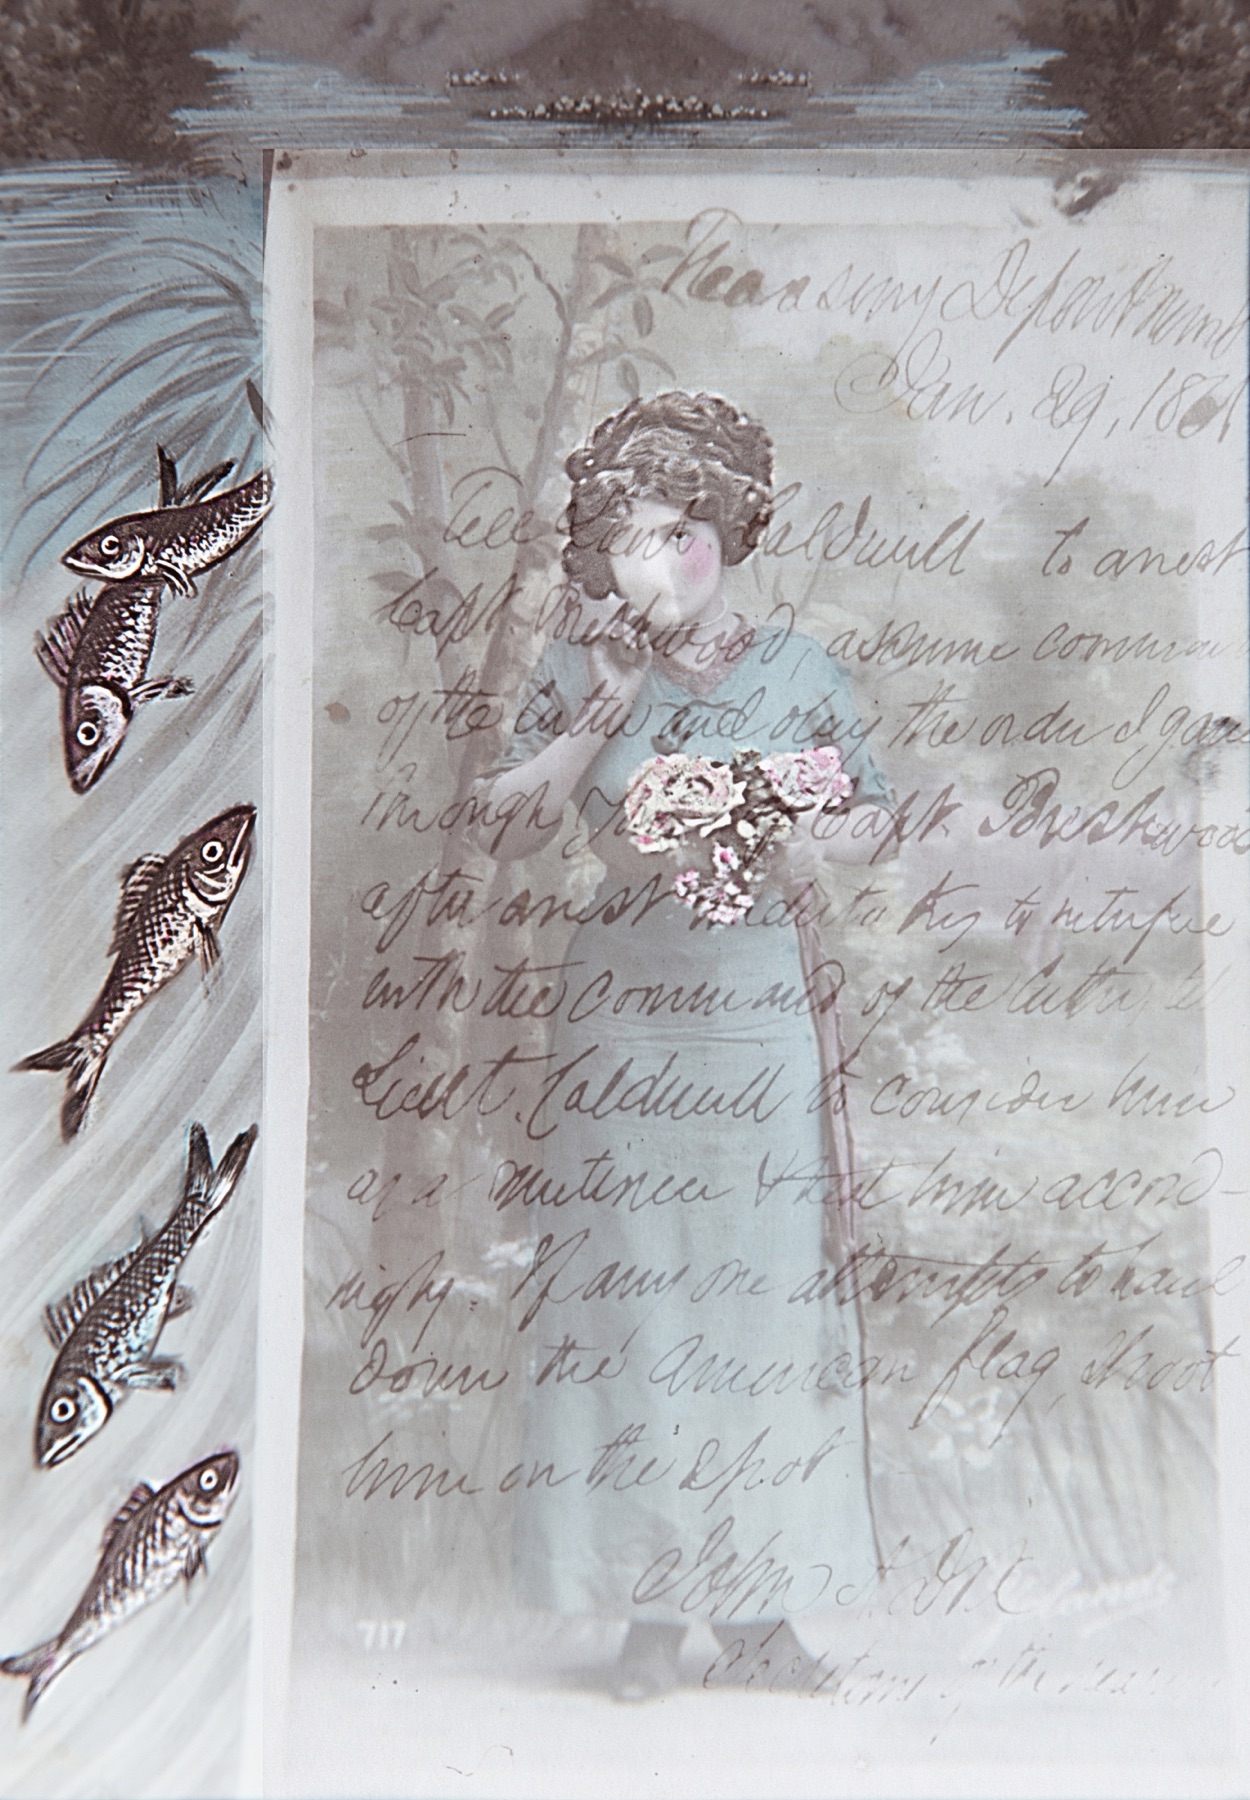 Treasury Department
Jan. 29, 1861
Tell Lieut Caldwell to arrest
Capt. Breshwood, assume comman
of the Cutter and obey the order I gave
through Capt. Breshwood
after arrest undertakes to interfere
with the command of the Cutter, tell
Lieut. Caldwell to consider him
as a mutineer & treat him accord-
ingly. If any one attempts to haul
down the American flag, shoot
him on the spot.
John A. Dix
Secretary of the
717